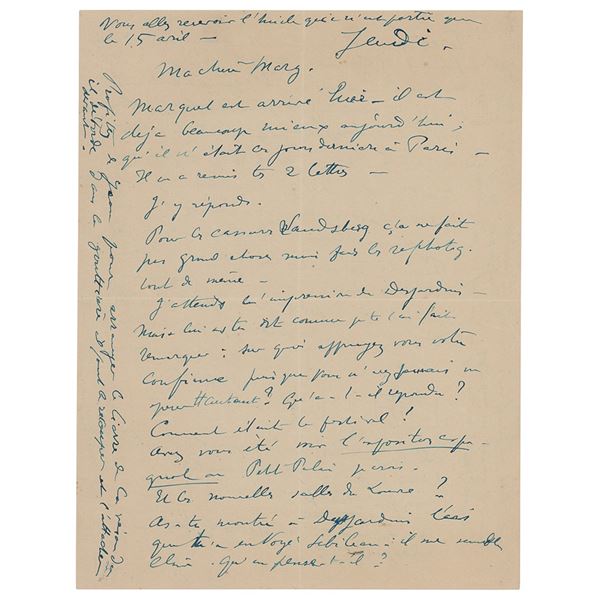 Vous allez recevoir l'huile qui n'est partie que
le 15 avril –
Jeudi.
Ma chère Marg.
Marquet est arrivé hier – il est
déjà beaucoup mieux aujourd'hui,
qu'il n'était ces jours derniers à Paris –
Il m'a remis tes 2 lettres –
J'y réponds.
Pour les Landsberg ça ne fait
pas grand chose mais fais les rephotog.
tout de même –
J'attends l'impression de Desjardins –
Mais lui as tu dit comme je te l'ai fait
remarquer : sur quoi appuyez vous votre
confiance puisque vous n'avez jamais vu
Qu'a-t-il répondu ?
Comment était le festival ?
Avez vous été voir l'exposition espa-
gnole au Petit Palais
Et les nouvelles salles du Louvre ?
As-tu montré à Desjardins
que t'a envoyé Sebileau – il me semble
clair. qu'en pense-t-il ?
Profitez de Jean pour arranger le lierre de la maison
il déborde dans la gouttière il faut le couper et l'attacher
devant –